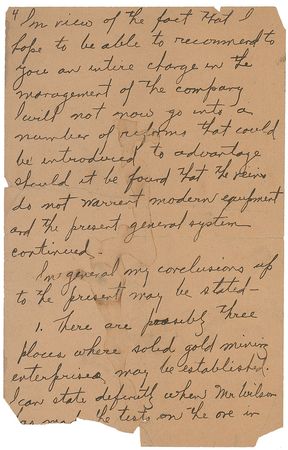 4
In view of the fact that I
hope to be able to recommend to
you an intire charge in the
management of the company
I will not now go into a
number of reforms that could
be introduced to advantage
should it be found that the veins
do not warrent modern equipment
and the present general system
continued.
In general my conclusions up
to the present may be stated—
1. There are possibly three
places where solid gold mining
enterprises may be established.
I can state definitly when Mr Wilson
has made the tests on the ore in